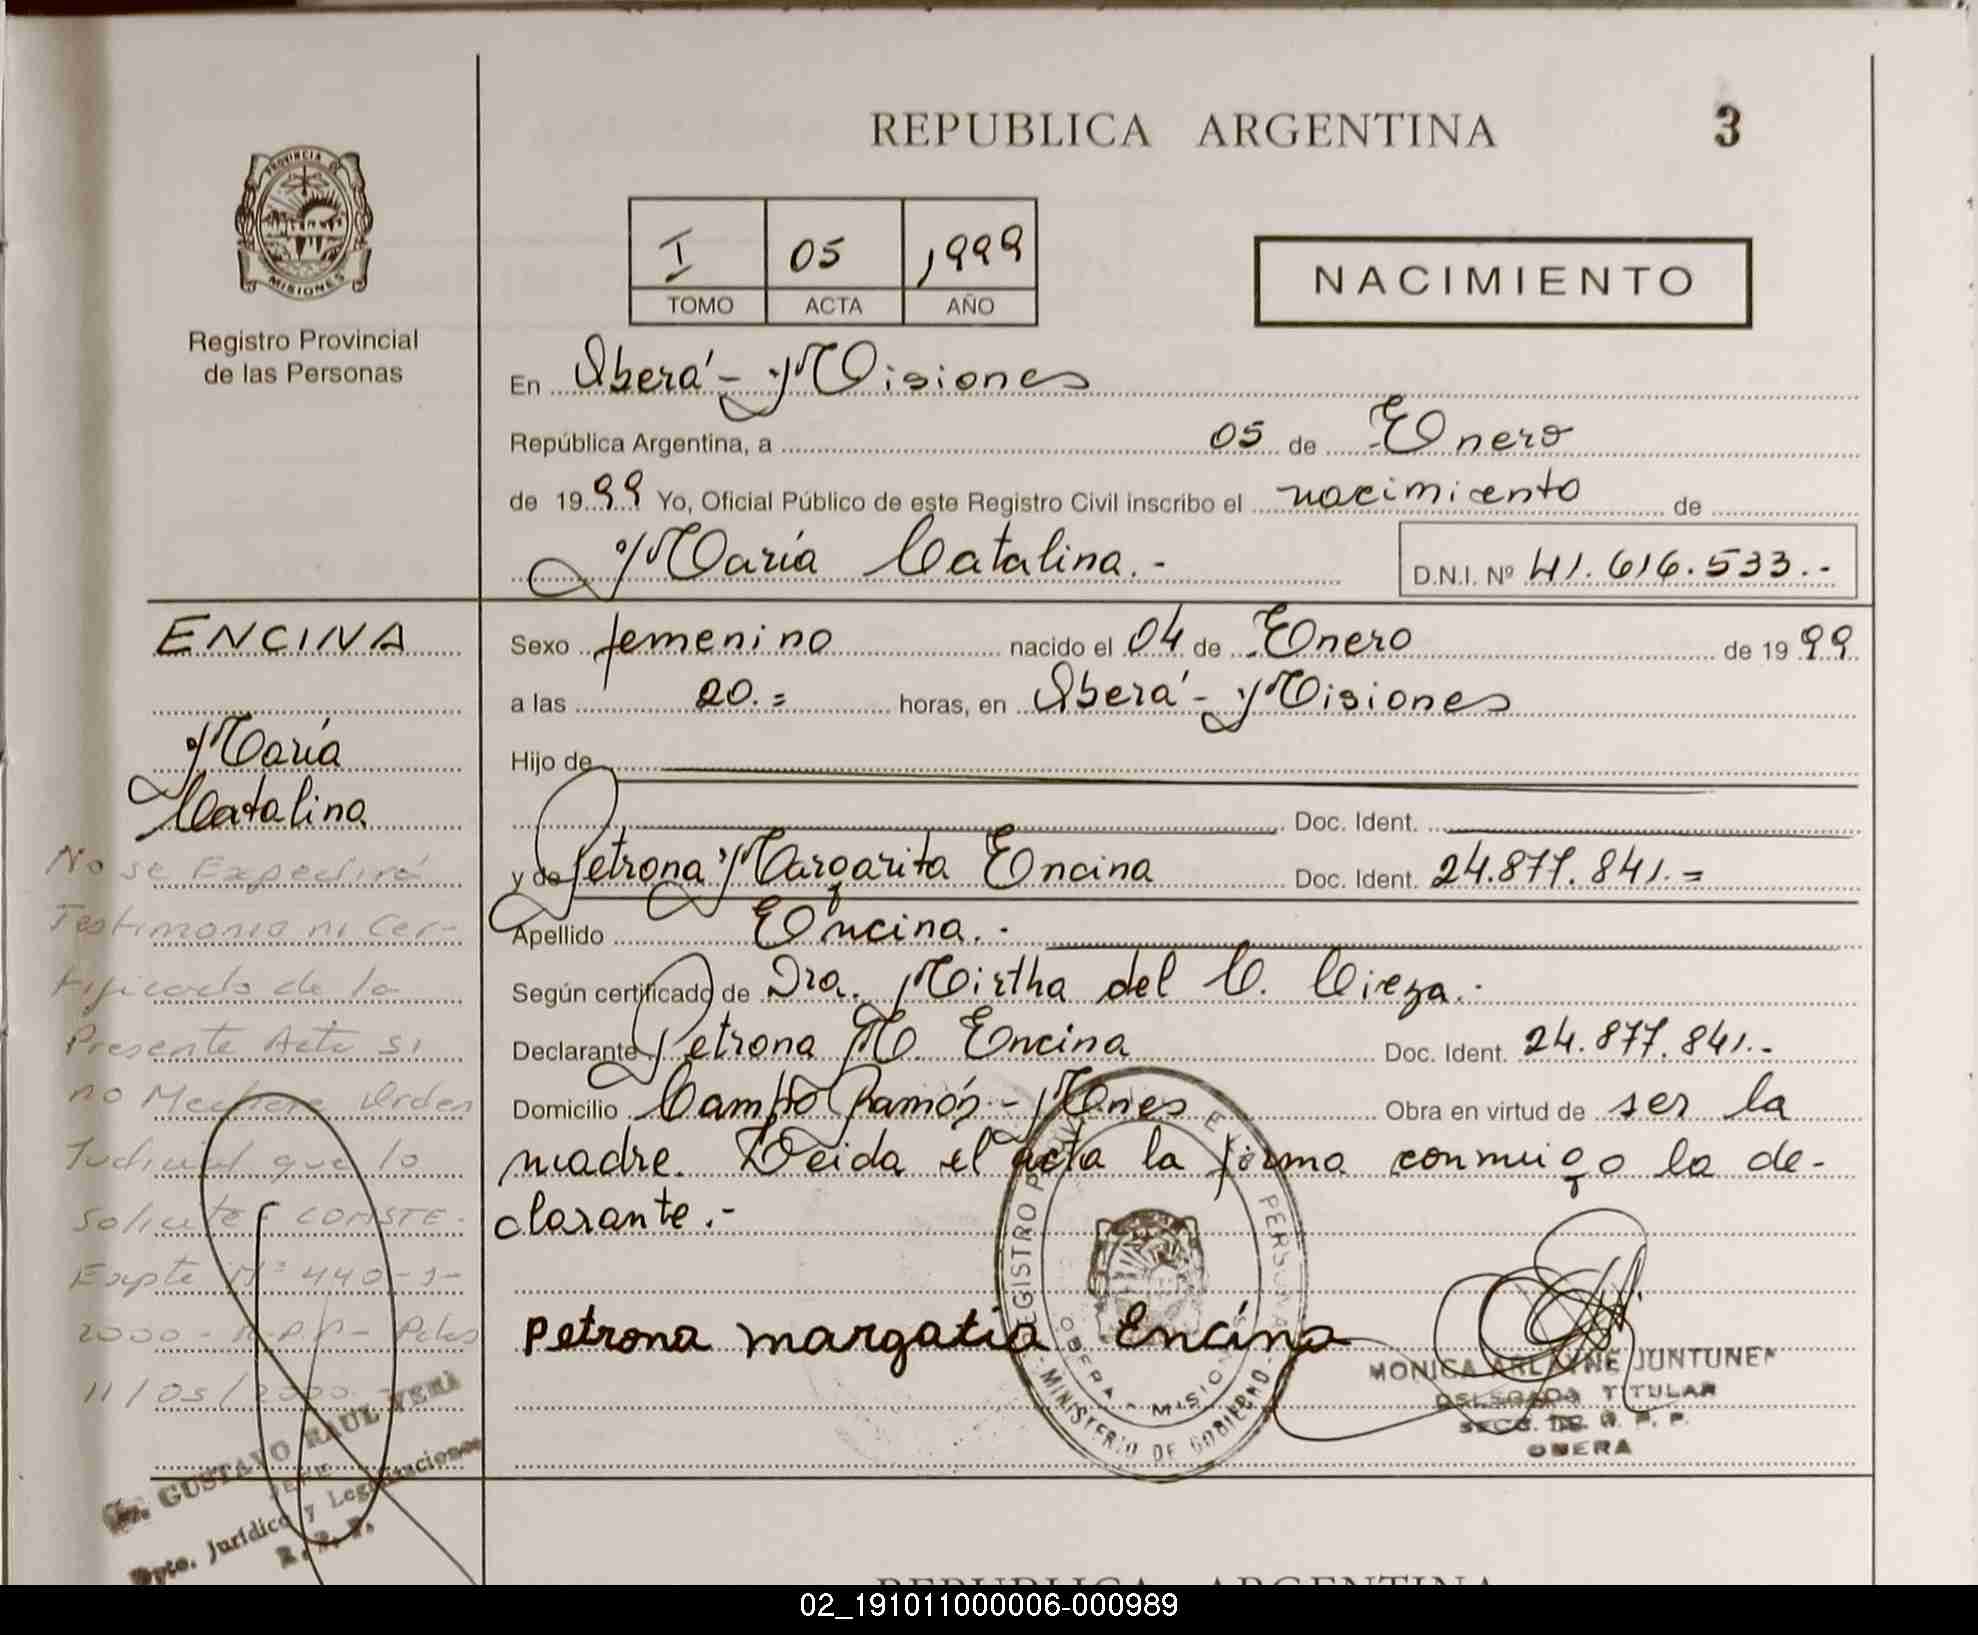 REPUBLICA ARGENTINA
3
PROVINCIA DE
MISIONES
Registro Provincial
de las Personas
I 05 1999
TOMO ACTA AÑO
NACIMIENTO
En Oberá - Misiones
República Argentina, a 05 de Enero
de 1999 Yo, Oficial Público de este Registro Civil inscribo el nacimiento de
María Catalina.-
D.N.I. Nº 41.616.533.-
ENCINA
María
Catalina
Sexo femenino nacido el 04 de Enero de 1999
a las 20.= horas, en Oberá - Misiones
Hijo de
Doc. Ident.
y de Petrona Margarita Encina Doc. Ident. 24.877.841.=
Apellido Encina.-
Según certificado de Dra. Mirtha del C. Cieza.-
Declarante Petrona M. Encina Doc. Ident. 24.877.841.-
Domicilio Campo Ramón - Mnes Obra en virtud de ser la
madre. Leida el acta la firma conmigo la de-
clarante.-
No se Expedirá
Testimonio ni Cer-
tificado de la
Presente Acta si
no Mediare Orden
Judicial que lo
Solicite CONSTE-
Expte Nº 440-J-
2000 - R.P.P - Pdas
11/05/2000.
GUSTAVO RAUL VERA
JEFE
Dpto. Jurídico y Legitimaciones
R. P. P.
Petrona margatia Encina
REGISTRO PERSONAS
OBERA - MISIONES
MINISTERIO DE GOBIERNO
MONICA ARLAYNE JUNTUNEN
DELEGADA TITULAR
SECC. DE R. P. P.
OBERA
REPUBLICA ARGENTINA
02_191011000006-000989